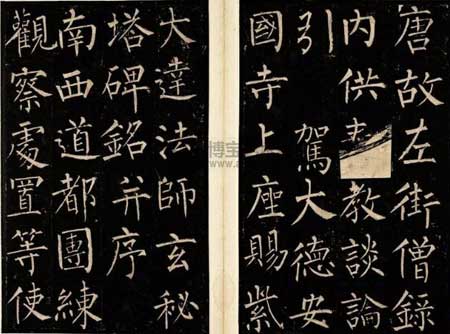 唐故左街僧錄
內供教談論
引駕大德安
國寺上座賜紫
大達法師玄秘
塔碑銘并序
南西道都團練
觀察處置等使
博宝